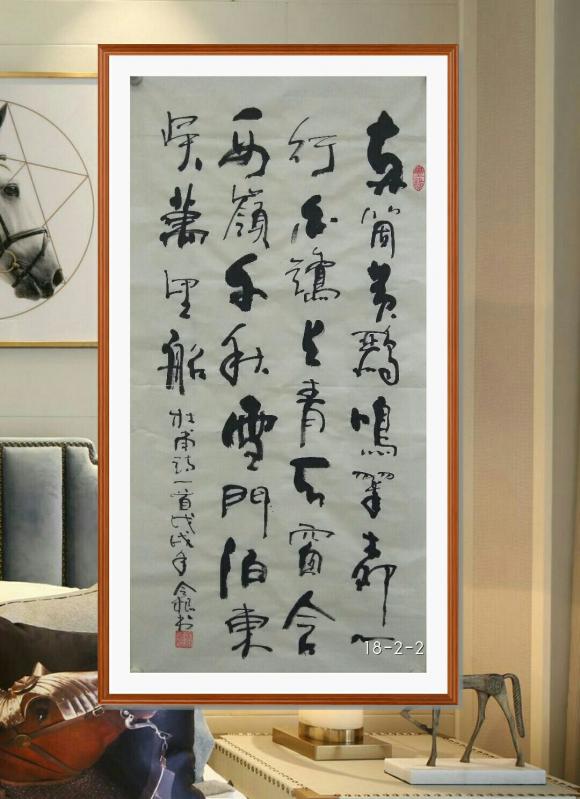 两箇黄鸝鳴翠柳一
行白鷺上青天窗含
西嶺千秋雪門泊東
吴萬里船
杜甫詩一首戊戌年书
18-2-2